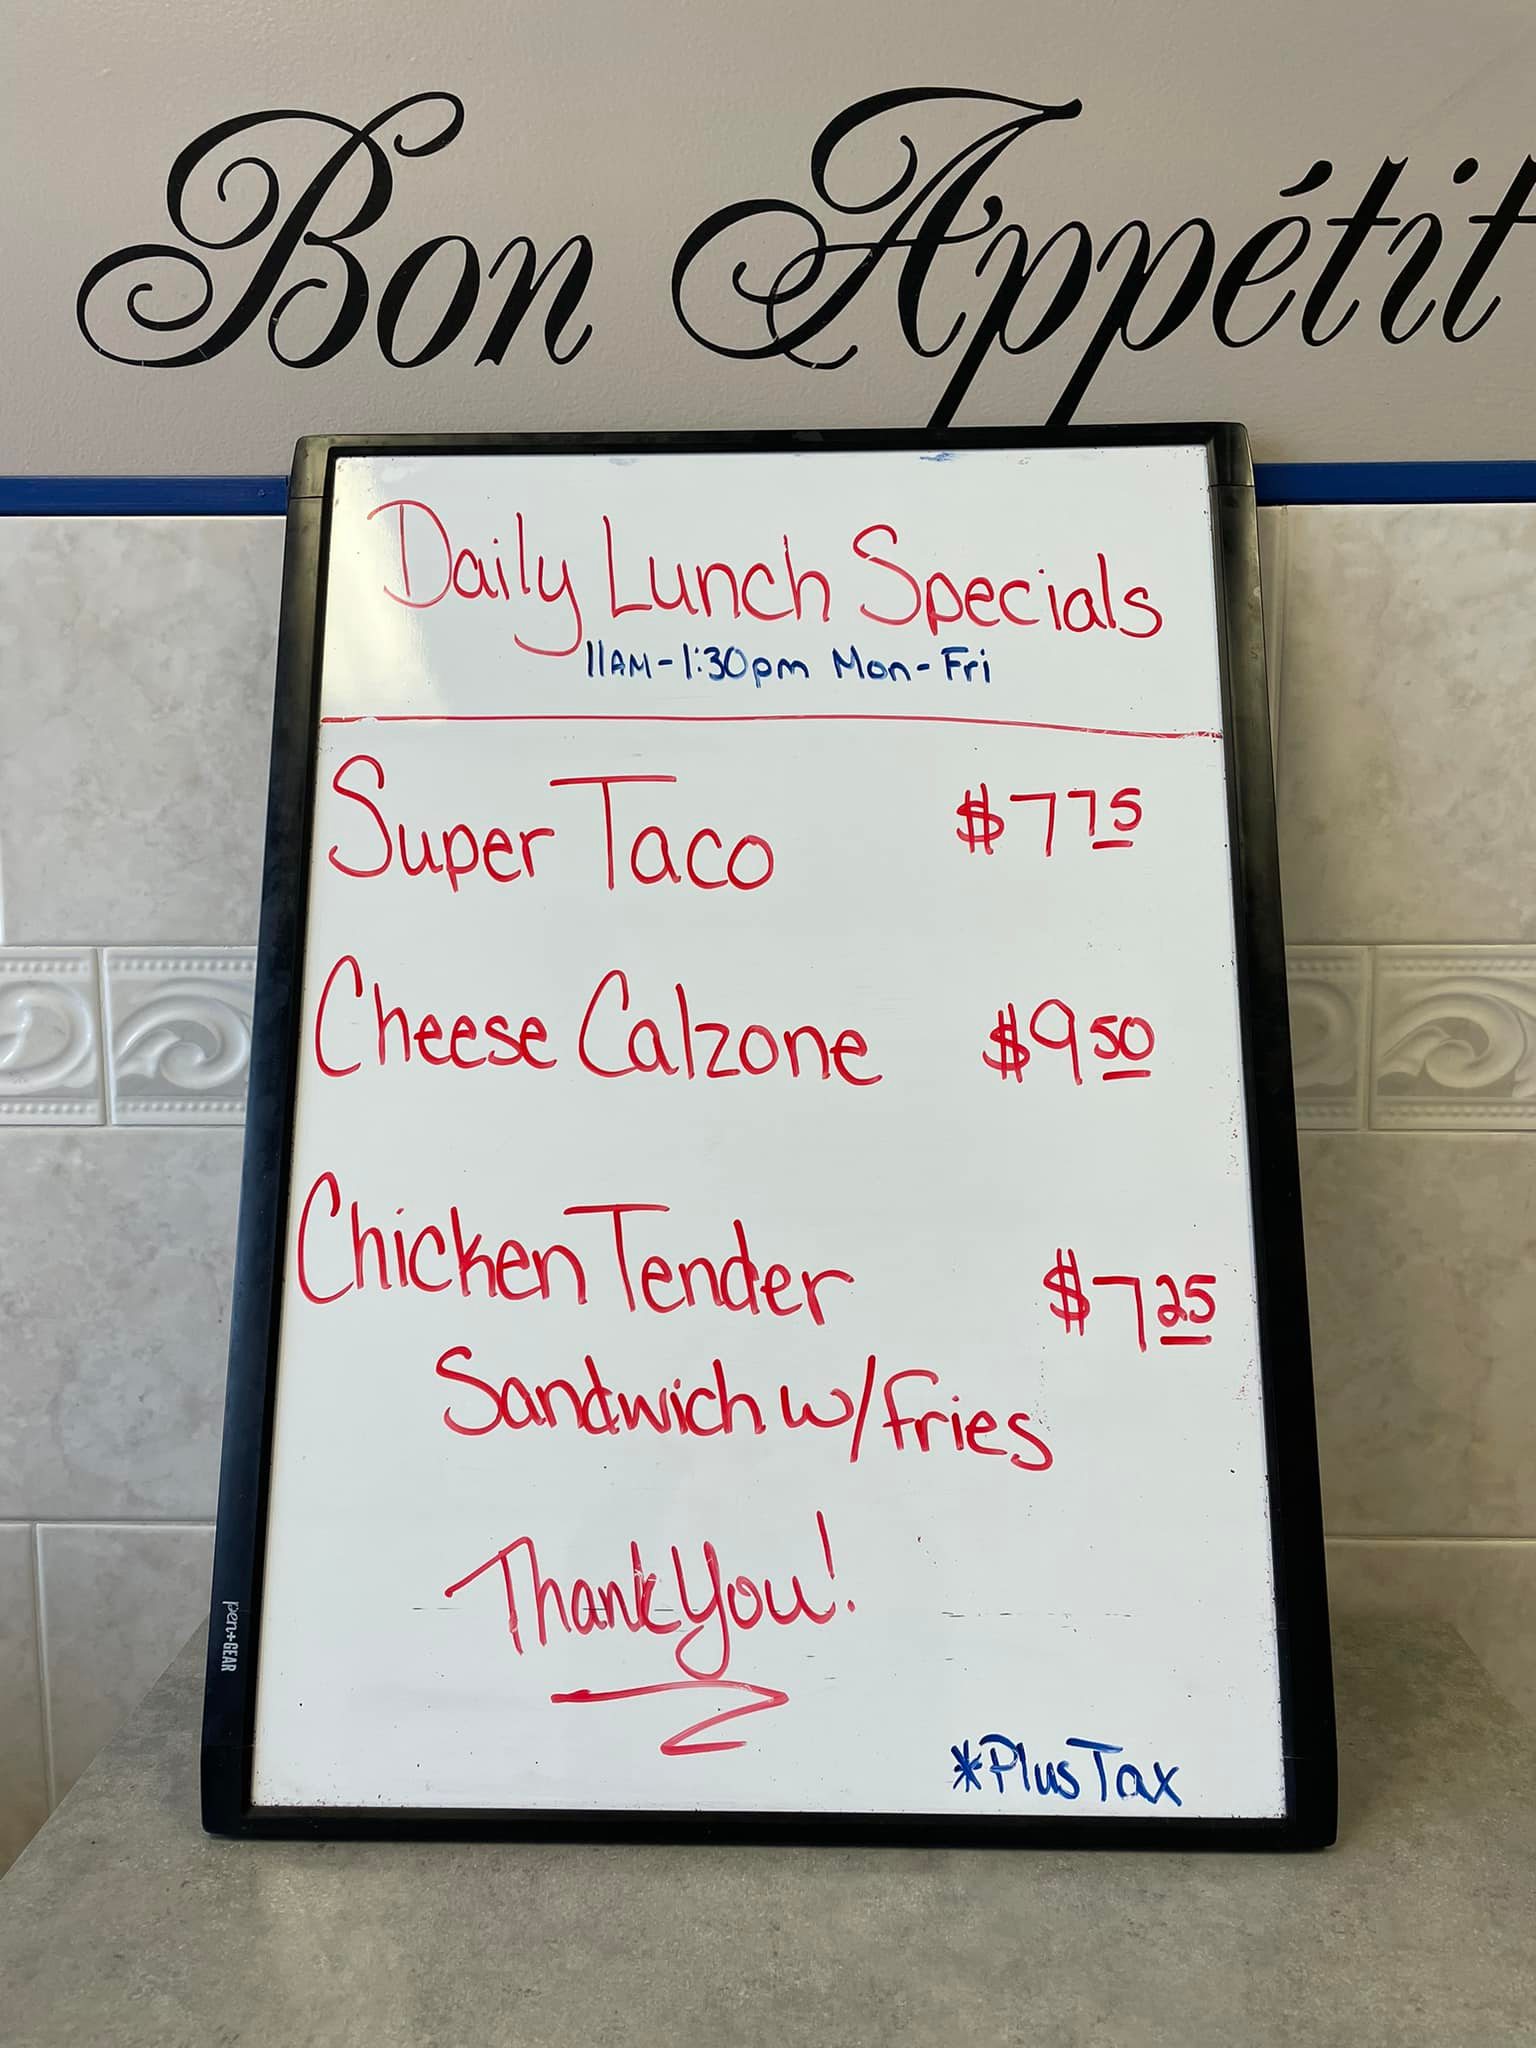 Bon Appétit
Daily Lunch Specials
11AM-1:30pm Mon-Fri
Super Taco $7 75
Cheese Calzone $9 50
Chicken Tender $7 25
Sandwich w/fries
Thank You!
*Plus Tax
pen+GEAR